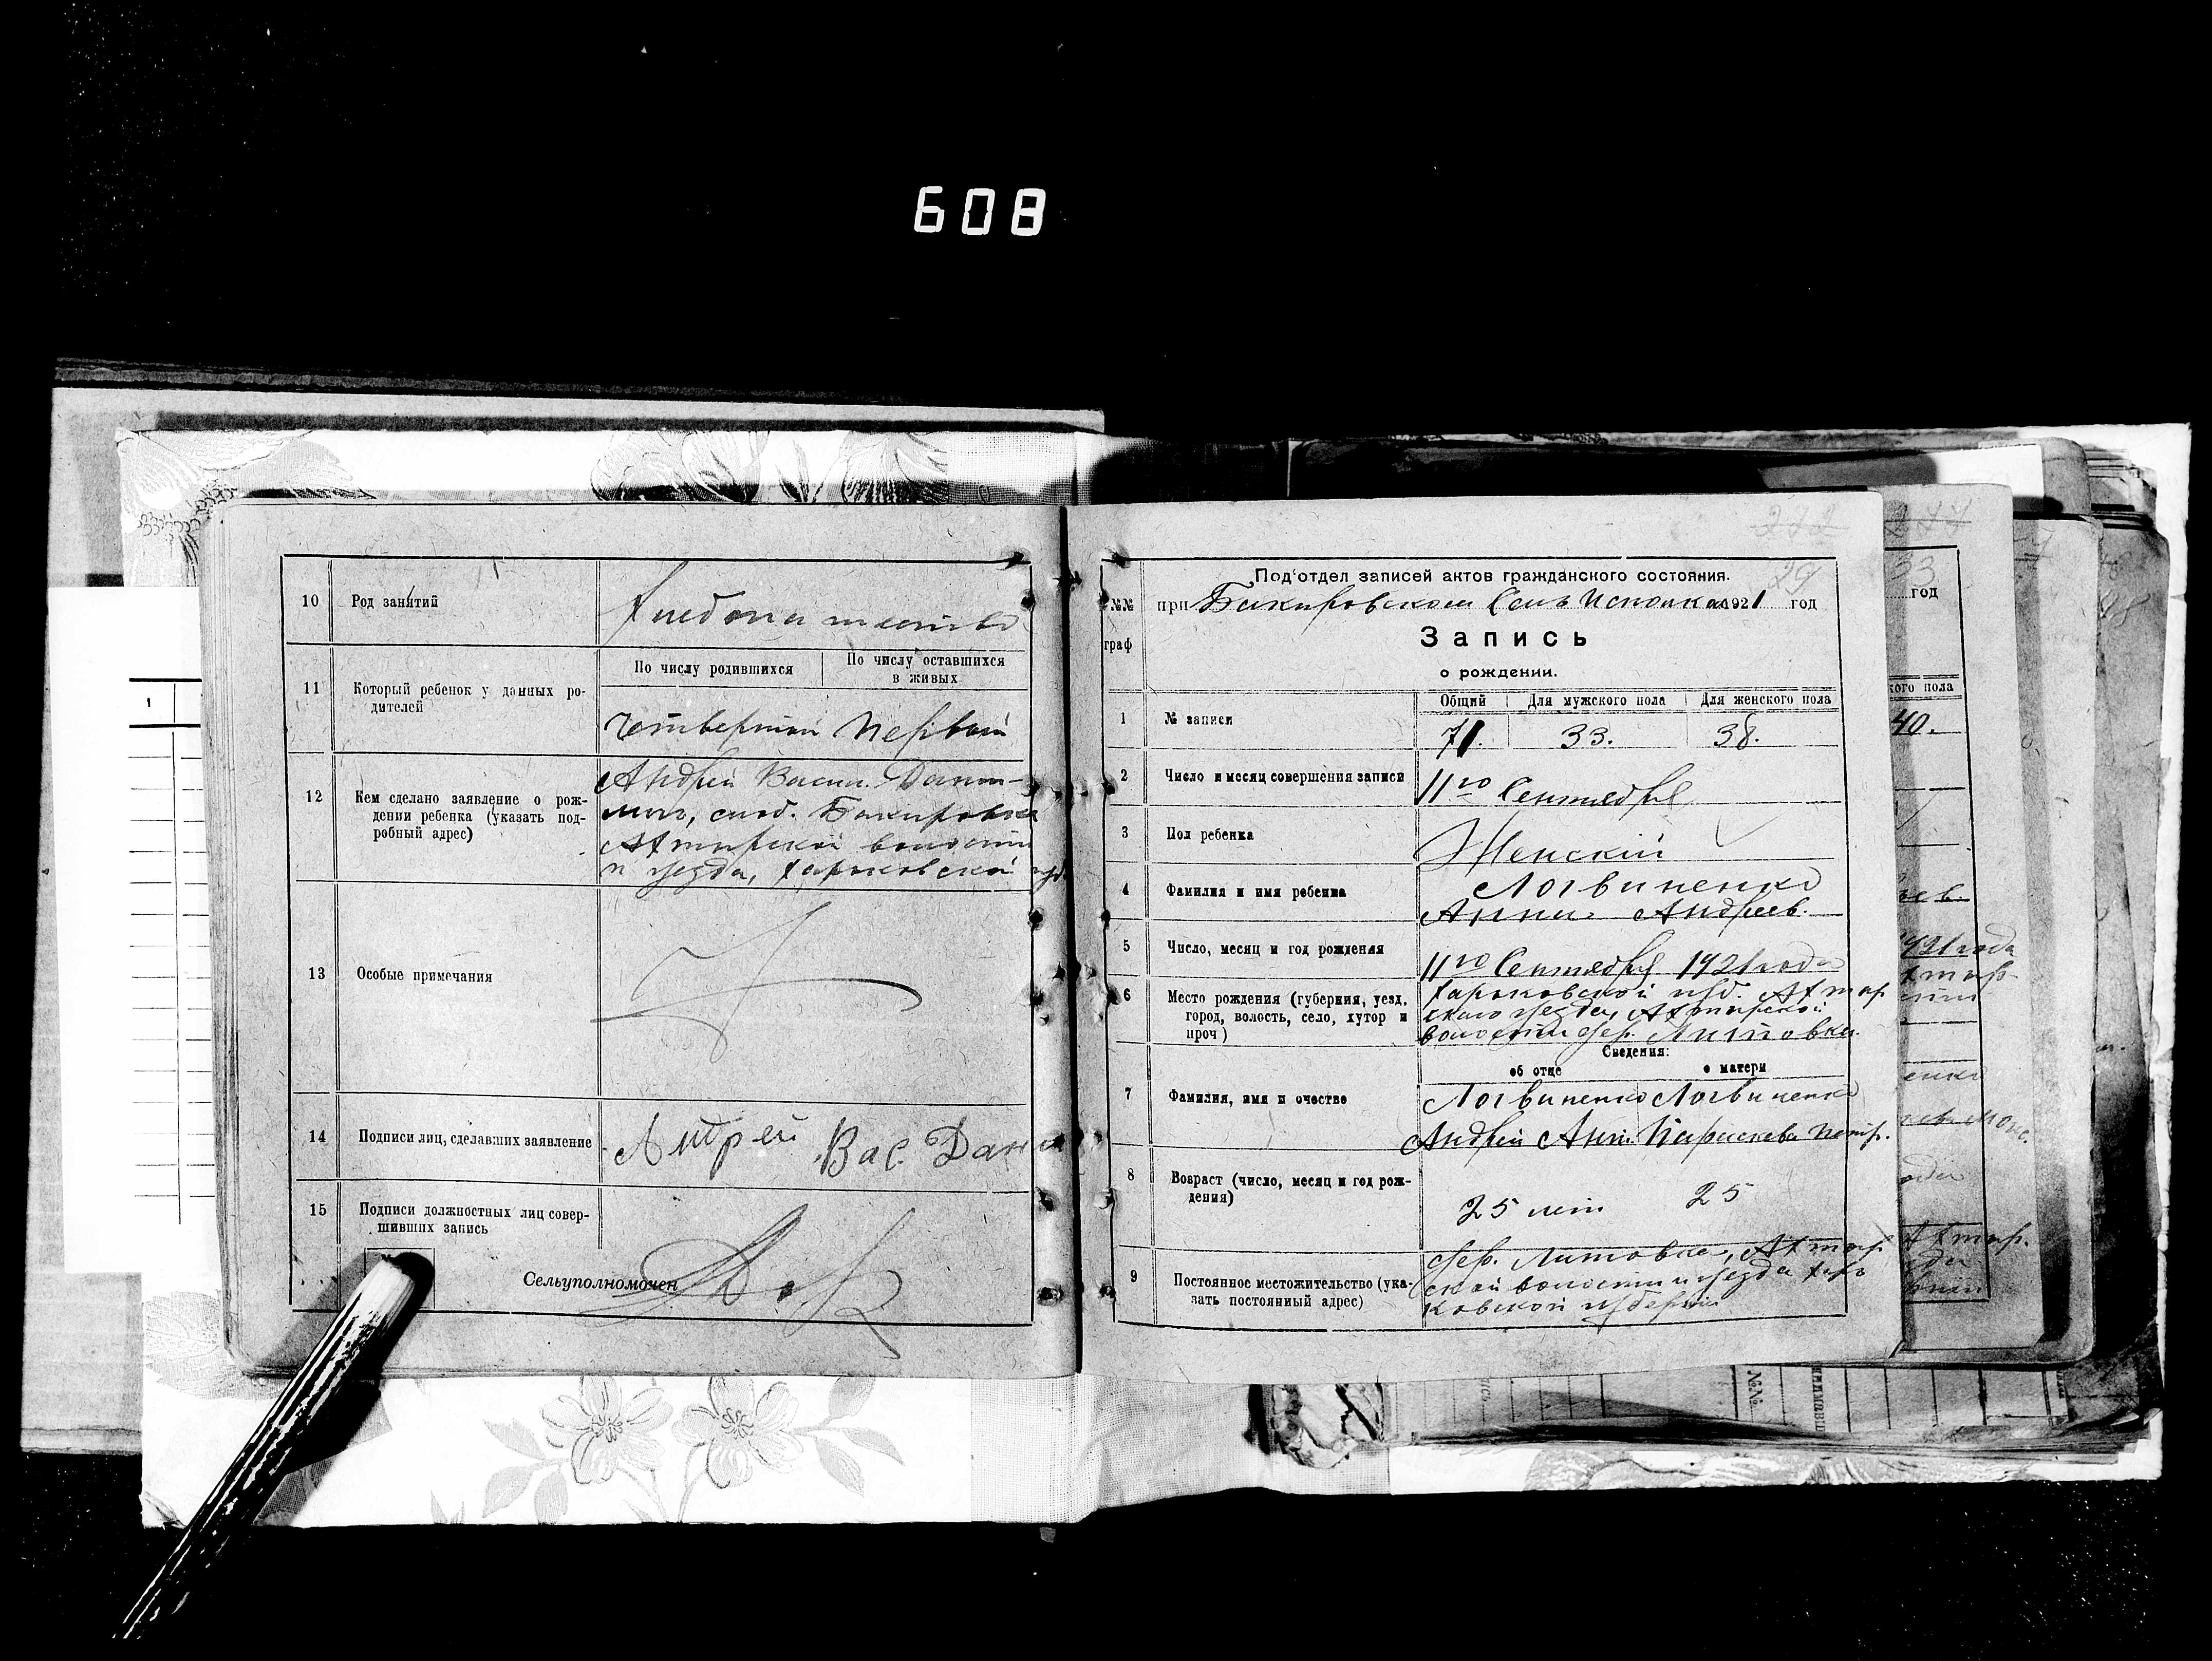 608
10 Род занятий
Хлебопашество
11 Который ребенок у данных ро-
дителей
По числу родившихся
По числу оставшихся
в живых
Четвертый Первый
12 Кем сделано заявление о рож-
дении ребенка (указать под-
робный адрес)
Андрей Васил. Данили-
слоб. Бакировка
Ахтырской волости
и уезда, Харьковской губ.
13 Особые примечания
14 Подписи лиц, сделавших заявление
Андрей Вас. Дан
15 Подписи должностных лиц совер-
шивших запись
Сельуполномочен
272
29
Под'отдел записей актов гражданского состояния.
№№
граф
при Бакировском Сель Исполкоме 1921 год
Запись
о рождении.
1 № записи
Общий Для мужского пола Для женского пола
71. 33. 38.
2 Число и месяц совершения записи
11го Сентября
3 Пол ребенка
Женскій
4 Фамилия и имя ребенка
Логвиненко
Анна Андреев.
5 Число, месяц и год рождения
11го Сентября 1921 года
6 Место рождения (губерния, уезд,
город, волость, село, хутор и
проч)
Харьковской губ. Ахтыр
скаго уезда, Ахтырской
волости дер. Литовка.
Сведения:
об отце о матери
7 Фамилия, имя и очество
Логвиненко Логвиненко
Андрей Параскева Петр.
8 Возраст (число, месяц и год рож-
дения)
25 лет 25
9 Постоянное местожительство (ука-
зать постоянный адрес)
дер. Литовка, Ахтыр
ской волости и уезда Харь
ковской губернии
33
год
кого пола
40.
1921 года